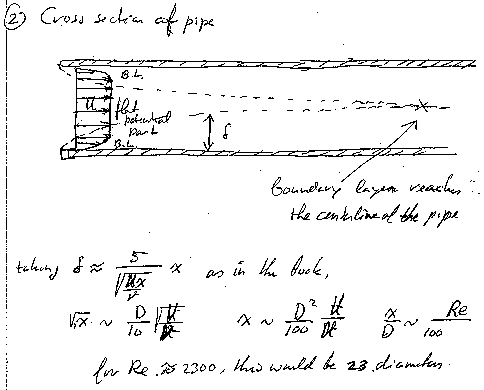 ② Cross section of pipe
B.L.
U flat
potential
part
δ
B.L.
boundary layer reaches
the centerline of the pipe
taking δ ≈ 5/√(Ux/ν) x as in the book,
√x ~ D/10 √(U/ν) x ~ D²/100 U/ν x/D ~ Re/100
for Re ≈ 2300, this would be 23 diameters.